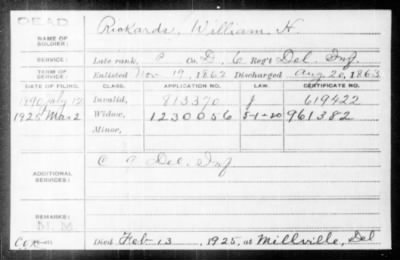 DEAD
NAME OF SOLDIER: Rickards, William H.
SERVICE: Late rank, P Co. D, 6 Reg't Del. Inf.
TERM OF SERVICE: Enlisted Nov. 19, 1862 Discharged Aug 20, 1863
DATE OF FILING. CLASS. APPLICATION NO. LAW. CERTIFICATE NO.
1890 July 12 Invalid, 813370 J 619422
1925 Mar 2 Widow, 1230056 5-1-20 961382
Minor,
ADDITIONAL SERVICES: Del. Inf
REMARKS:
Died Feb 13, 1925, at Millville, Del